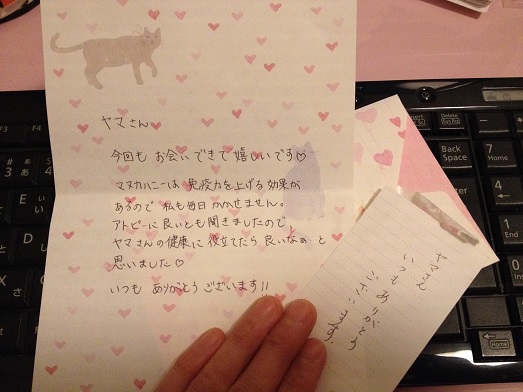 ヤマさん
今回も お会いできて嬉しいです♡
マヌカハニーは 免疫力を上げる効果が
あるので 私も毎日 かかせません。
アトピーに良いとも聞きましたので、
ヤマさんの健康に役立てたら良いなぁ と
思いました♡
いつも ありがとうございます!!
ヤマさん
いつもありがとう
ございます。
F3
F4
# 3 あ ぁ
$ 4
E い ぃ
Insert
Prt Sc
SysRq
Delete
Back
Space
Num
Lk
7
Home
4
1
Enter
Home